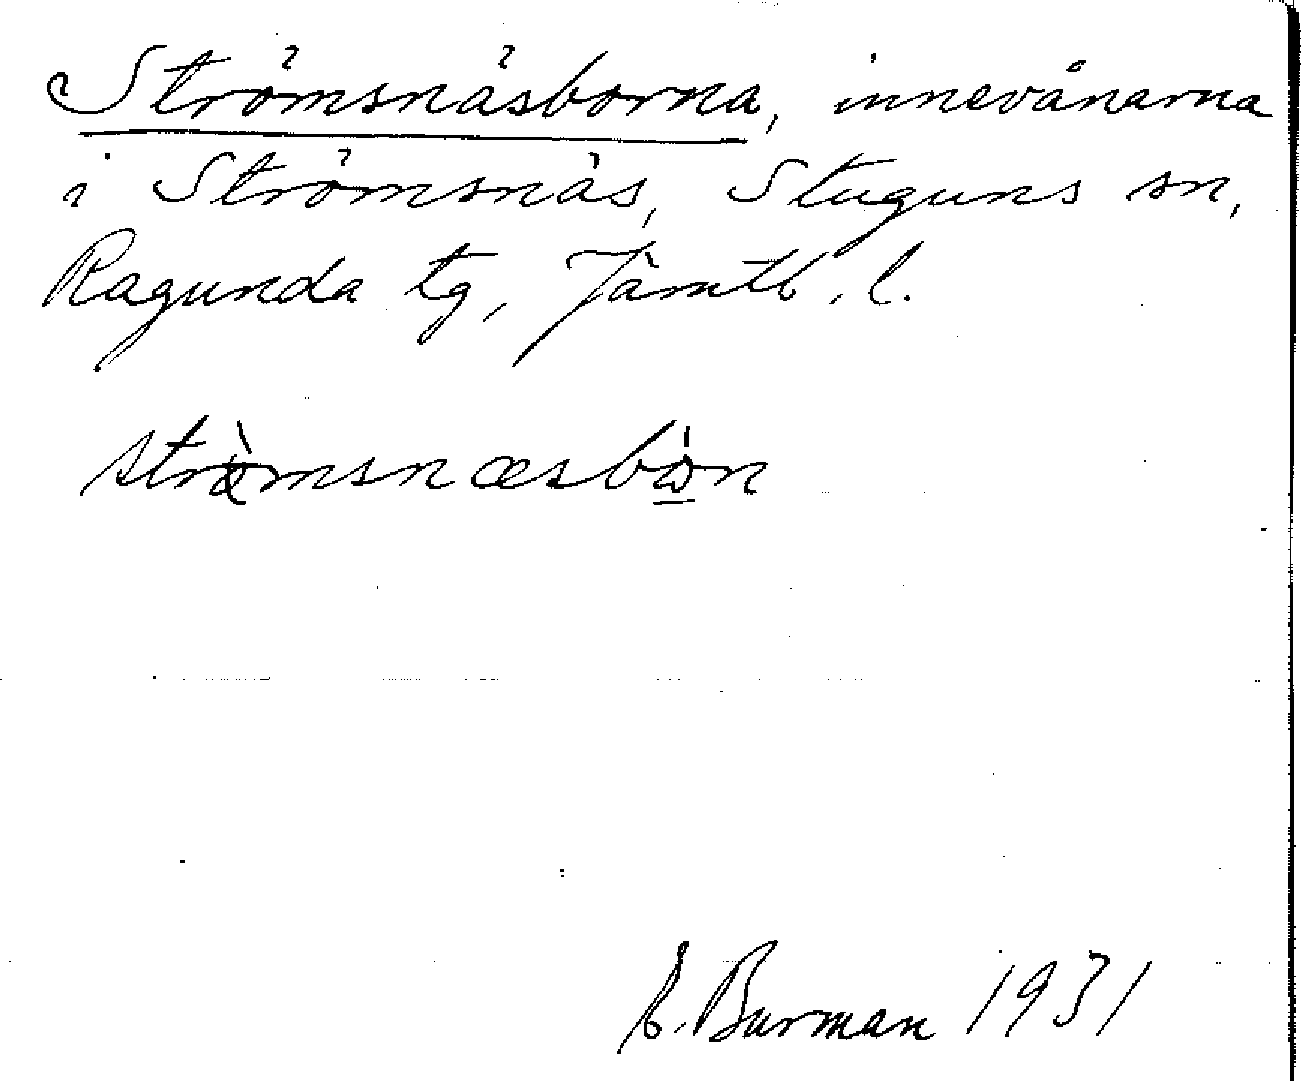 Strömsnäsborna, innevånarna
i Strömsnäs, Stuguns sn,
Ragunda tg, Jämtl. l.
strö̀msnæsbò̲n
E. Burman 1931